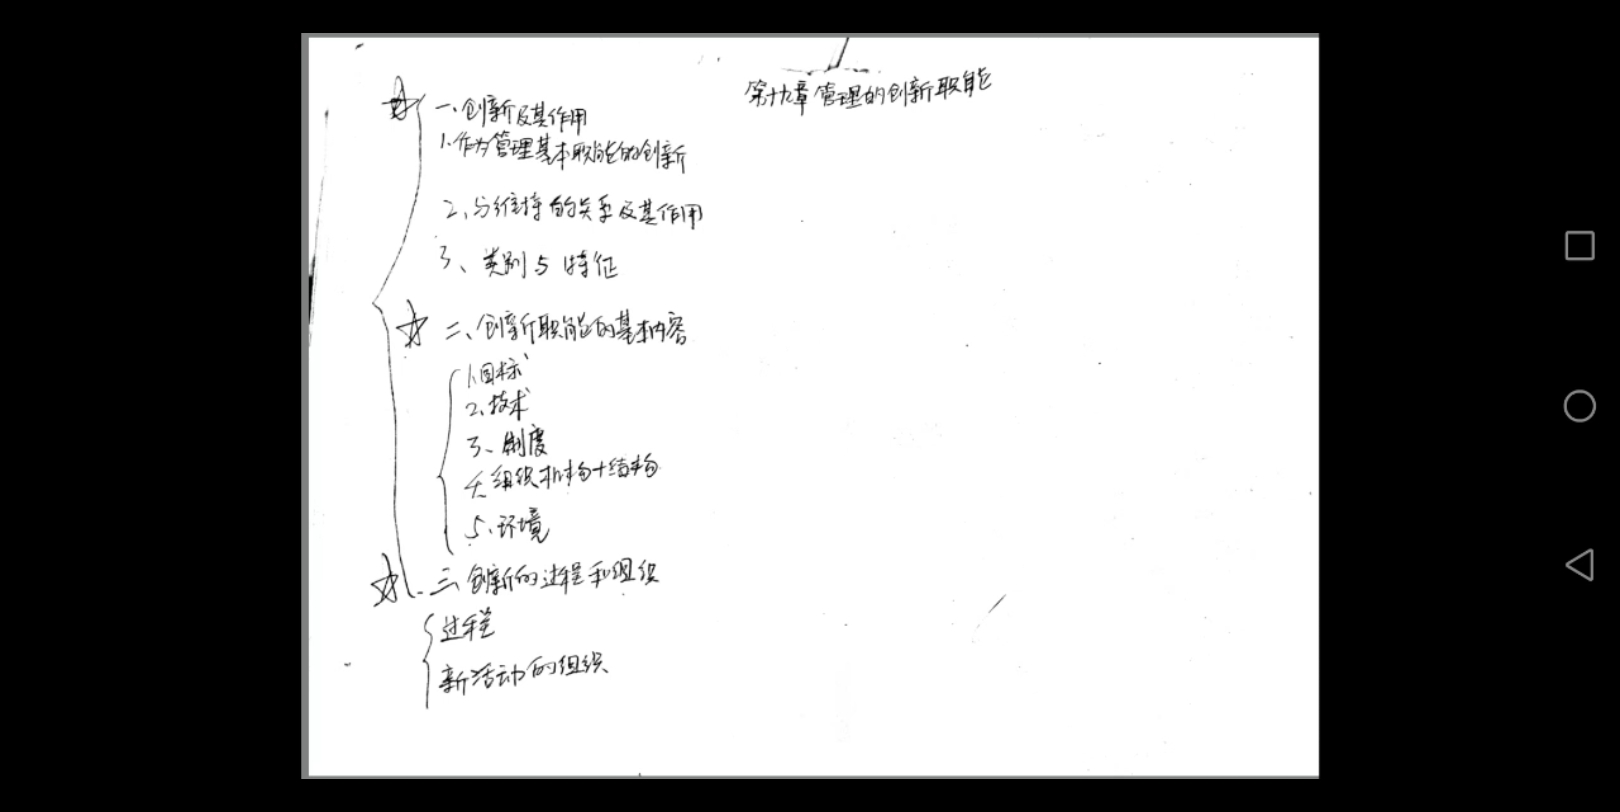 第十九章管理的创新职能
一、创新及其作用
1.作为管理基本职能的创新
2、与维持的关系及其作用
3、类别与特征
二、创新职能的基本内容
1.目标
2、技术
3、制度
4、组织机构+结构
5、环境
三、创新的过程和组织
过程
新活动的组织